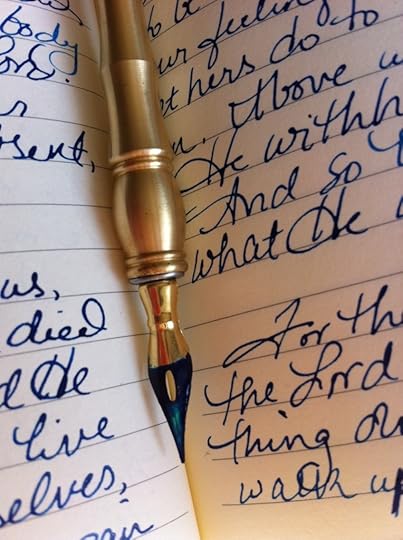 body
ord.
sent,
us,
died
d He
live
selves,
to be
ur feeling
thers do to
n. Above
He withh
And so
what He
For th
the Lord
thing
walk up